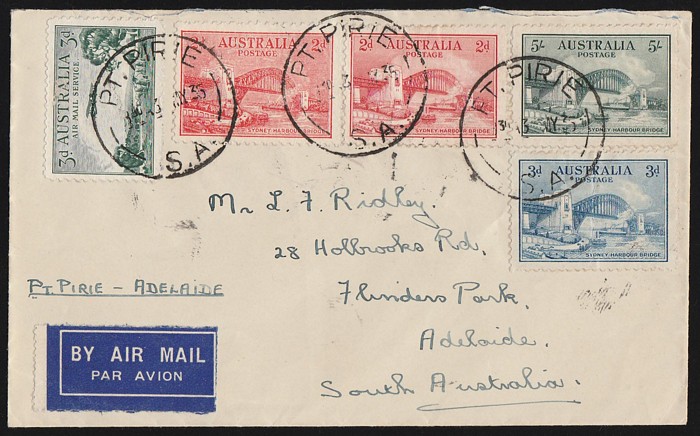 3d AUSTRALIA 3d
AIR MAIL SERVICE
AUSTRALIA 2d
POSTAGE
SYDNEY HARBOUR BRIDGE
2d AUSTRALIA 2d
POSTAGE
SYDNEY HARBOUR BRIDGE
5/- AUSTRALIA 5/-
POSTAGE
SYDNEY HARBOUR BRIDGE
3d AUSTRALIA 3d
POSTAGE
SYDNEY HARBOUR BRIDGE
PT. PIRIE
S.A.
PT. PIRIE
S.A.
PT. PIRIE
S.A.
Mr L. F. Ridley.
28 Holbrooks Rd.
Flinders Park.
Adelaide.
South Australia.
PT. PIRIE - ADELAIDE
BY AIR MAIL
PAR AVION